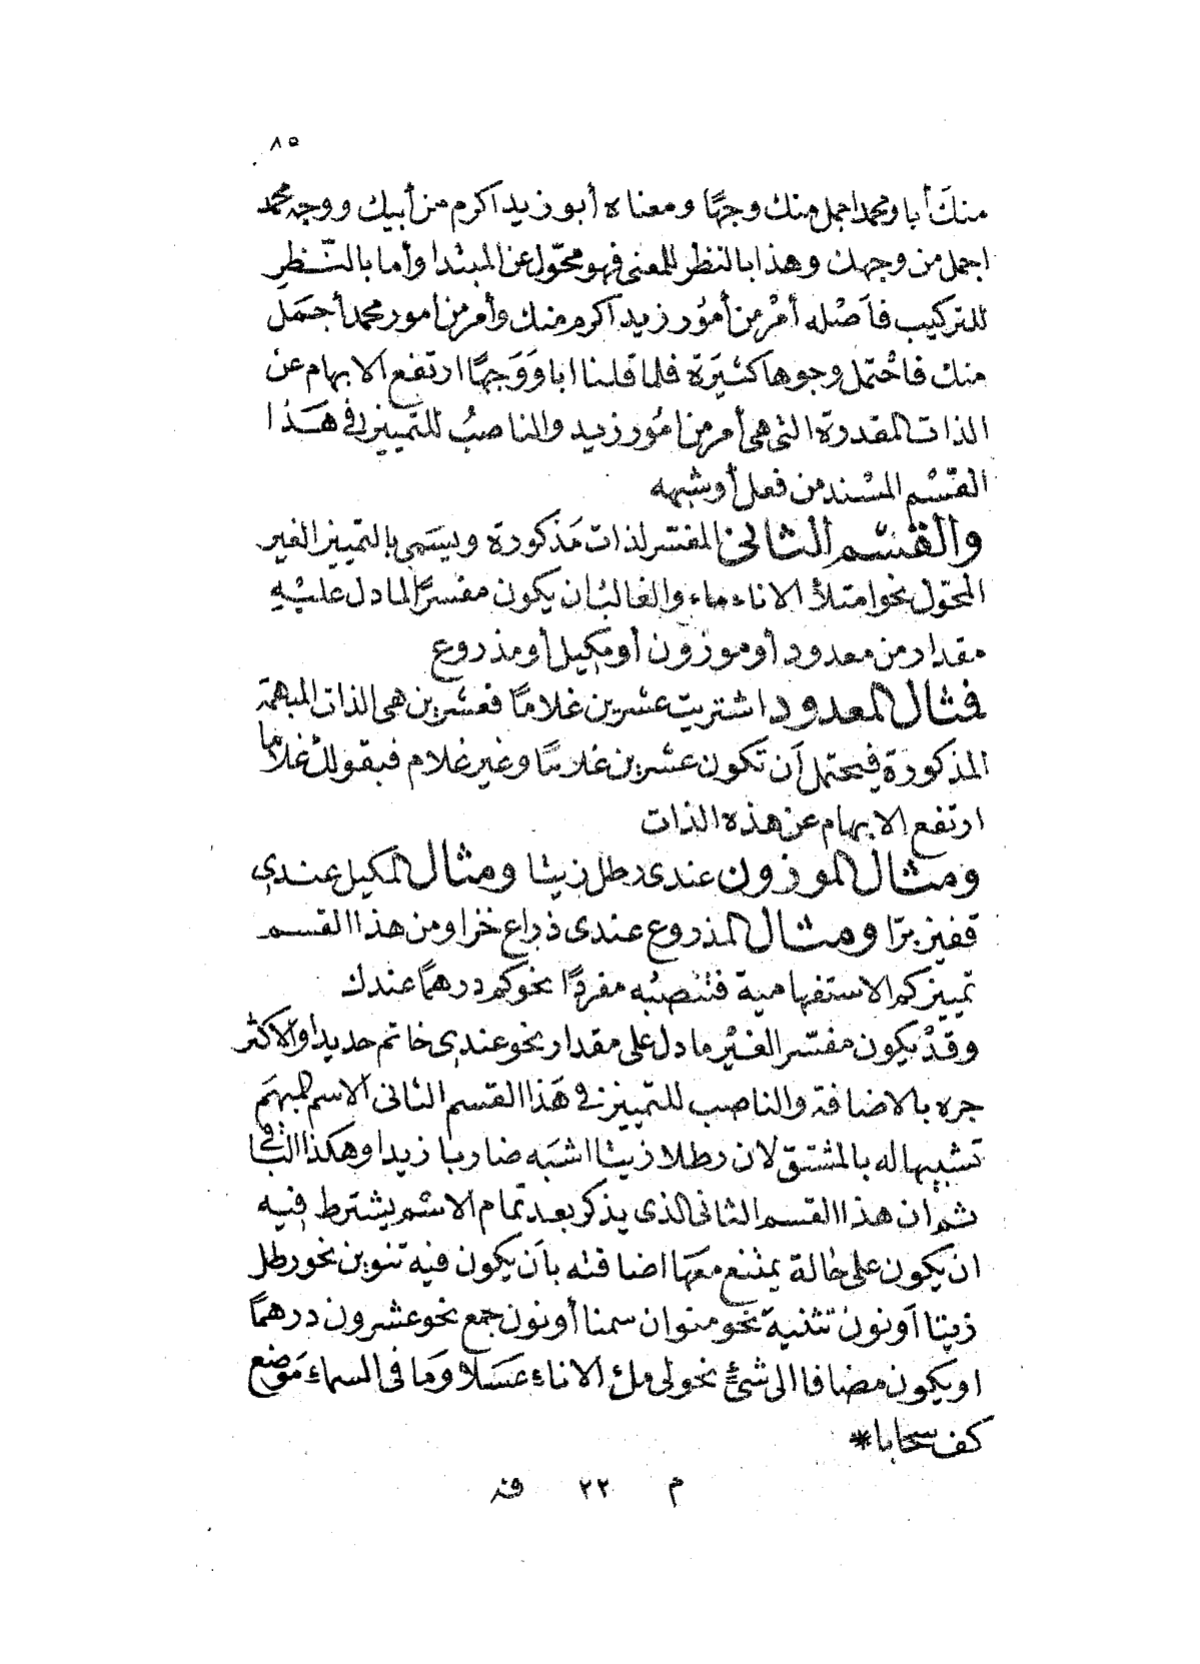 ٨٥
منكَ أبا ومحمد اجمل منك وجهًا ومعناه أبو زيد اكرم من أبيك ووجه محمد
اجمل من وجهك وهذا بالنظر للمعنى فهو محوّل عن المبتدا وأما بالنّظرِ
للتركيب فاَصْله أمْر من أمُور زيد اكرم منك وأمر من أمور محمد أجمَل
منك فاحْتمل وجوها كثيَرة فلما قلنا ابا وَوَجهًا ارتفع الابهام عنْ
الذات المقدرة التى هى أمر من امُور زيد والناصبُ للتمييز فى هَذا
القسْم المسْند من فعل أو شبهه
والقسْم الثانى المفسر لذات مَذكورة ويسَمى بالتمييز الغير
المحوّل نحو امتلأ الاناء ماء والغالبُ ان يكون مفسرًا لما دل عليْهِ
مقدار من معدود أو موزون أو مكيل أو مذروع
فمثال المعدود اشتريت عشرين غلامًا فعشرين هى الذات المبهمة
المذكورة فيحتمل اَن تكون عشرين غلامًا وغير غلام فبقولك غلاما
ارتفع الابهام عن هذه الذات
ومثال الموزون عندى رطل زيتا ومثال المكيل عندي
قفيز برّا ومثال المذروع عندى ذراع خزا ومن هذا القسم
تمييز كم الاستفهامية فتنصبُه مفردًا نحو كم درهمًا عندك
وقدْ يكون مفسّر الغيْر ما دل على مقدار نحو عندي خاتم حديدا والاكثر
جره بالاضافة والناصب للتمييز فى هَذا القسم الثانى الاسم المبهَم
تشبيها له بالمشتق لان رطلا زيتا اشبَه ضاربا زيدا وهكذا الباقي
ثم أن هذا القسم الثانى الذى يذكر بعد تمام الاسْم يشترط فيه
ان يكون على حالة يمتنع معَها اضافته باَن يكون فيه تنوين نحو رطل
زيتا اَو نون تثنية نحو منوان سمنا أو نون جمع نحو عشرون درهمًا
او يكون مضافا الى شئ نحو لى ملء الاناء عسَلا وَما فى السماء مَوضع
كف سحابا *
م ٢٢ فتـ